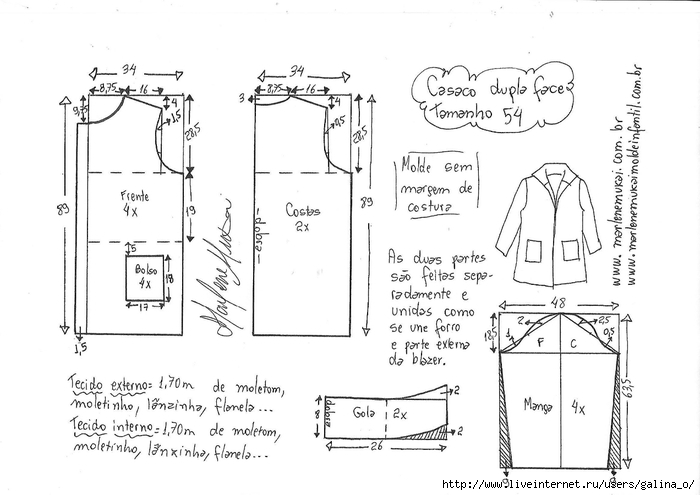 34
8,75
16
4
9,75
1,5
28,5
Frente
4x
89
19
5
Bolso
4x
18
17
1,5
34
8,75
16
3
4
0,5
28,5
Costas
2x
dobra
89
Casaco dupla face
Tamanho 54
Molde sem
margem de
costura
www.marlenemukai.com.br
www.marlenemukaimoldeinfantil.com.br
As duas partes
são feitas sepa-
radamente e
unidas como
se une forro
e parte externa
da blazer.
48
18,5
1
2
2,5
0,5
F
C
Manga
4x
63,5
Tecido externo = 1,70m de moletom,
moletinho, lãnzinha, flanela...
Tecido interno = 1,70m de moletom,
moletinho, lãnzinha, flanela...
dobra
8
Gola
2x
2
2
26
http://www.liveinternet.ru/users/galina_o/